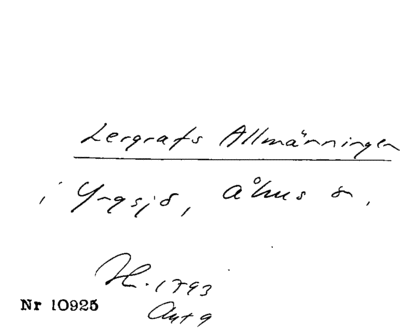 Lergrafs Allmänningen
i Yngsjö, Åhus s.
H. 1793
Nr 10925